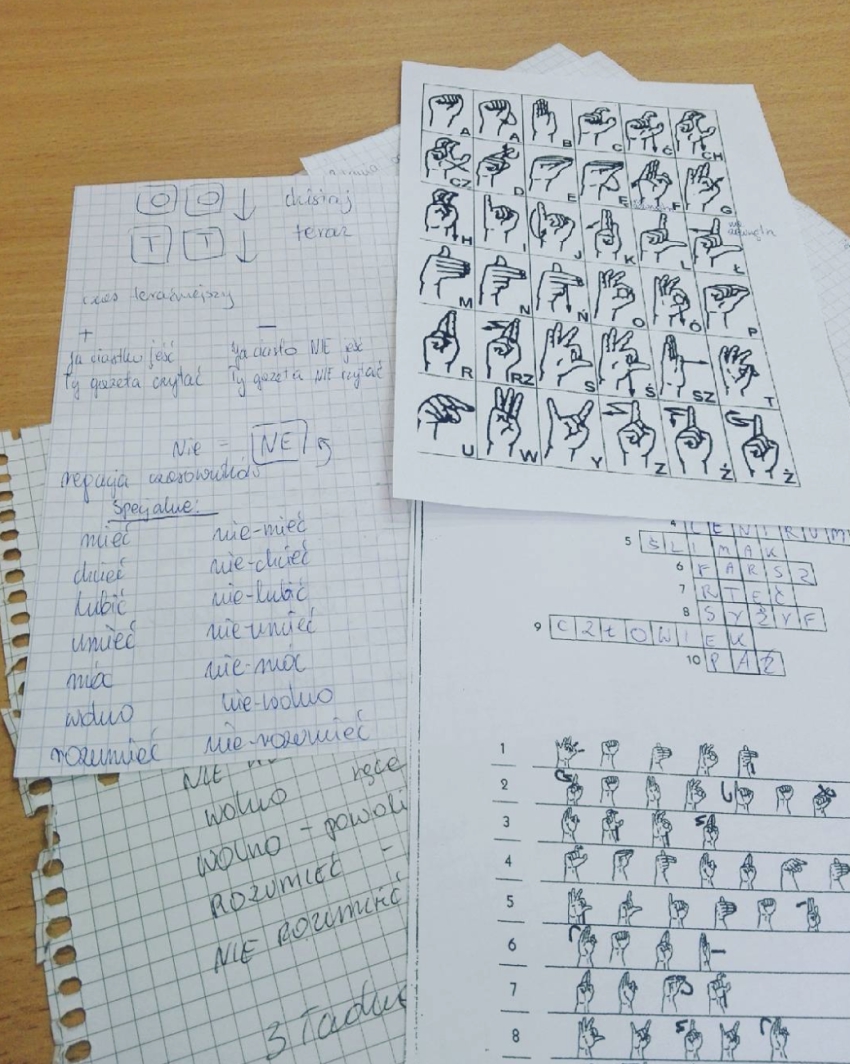 O O ↓ dzisiaj
T T ↓ teraz
czas teraźniejszy
+ −
ja ciastko jeść ja ciasto NIE jeść
Ty gazeta czytać Ty gazeta NIE czytać
Nie = NE
negacja czasowników
Specjalne:
mieć nie-mieć
chcieć nie-chcieć
lubić nie-lubić
umieć nie-umieć
móc nie-móc
wolno nie-wolno
rozumieć nie-rozumieć
NIE
wolno
wolno - powoli
ROZUMIEĆ -
NIE ROZUMIEĆ
3
A Ą B C Ć CH
CZ D E Ę F G
H I J K L Ł
M N Ń O Ó P
R RZ S Ś SZ T
U W Y Z Ż Ź
4 LENIRUM
5 ŚLIMAK
6 FARSZ
7 RTĘĆ
8 SYZYF
9 CZŁOWIEK
10 PAŹ
1
2
3
4
5
6
7
8